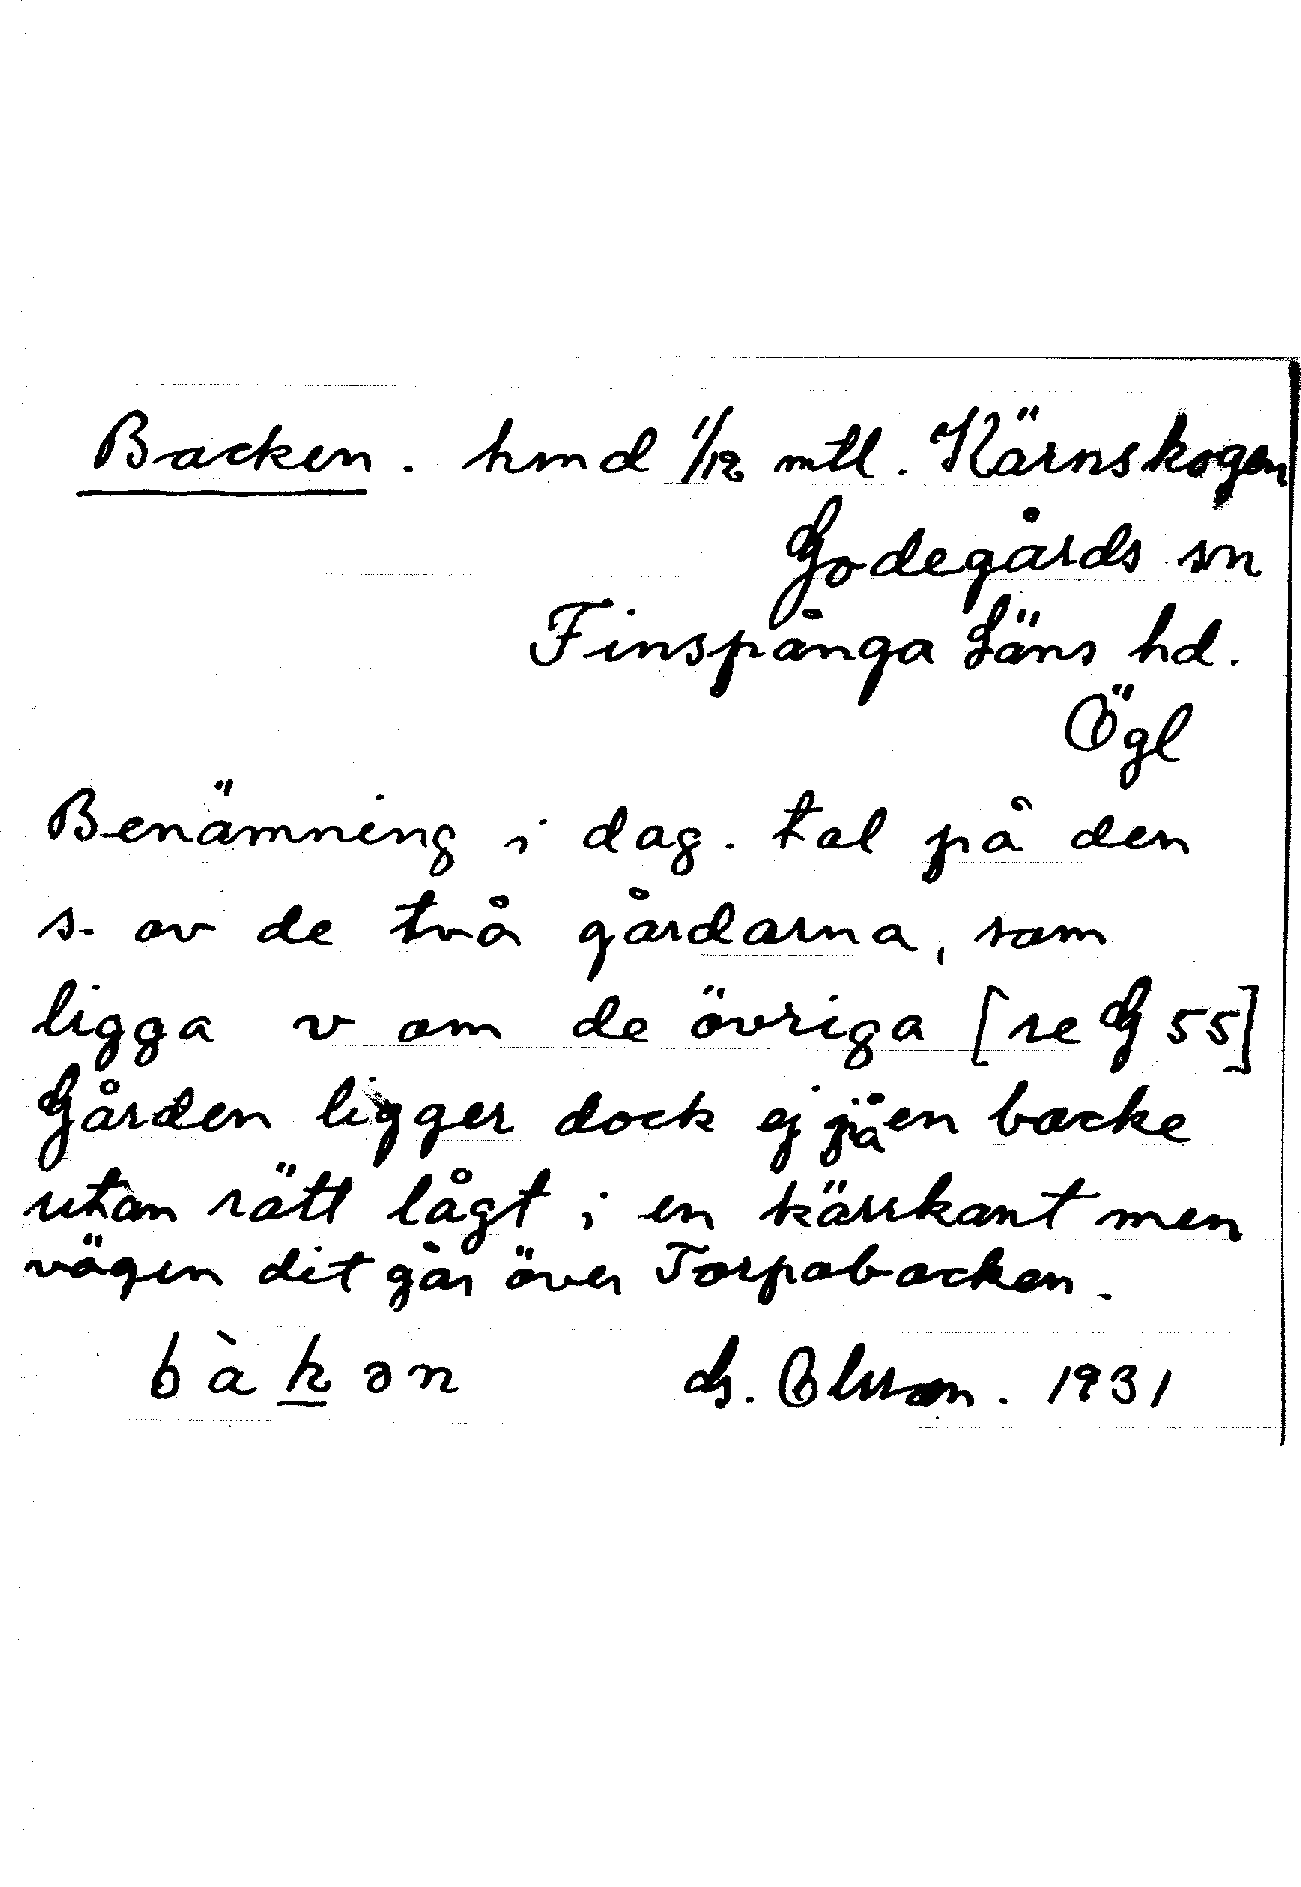 Backen. hmd 1/12 mtl. Kärnskogen
Godegårds sn
Finspånga Läns hd.
Ögl
Benämning i dag. tal på den
s. av de två gårdarna, som
ligga v om de övriga [se G 55]
Gården ligger dock ej på en backe
utan rätt lågt i en kärrkant men
vägen dit går över Torpabacken.
bàkən G. Olsson. 1931